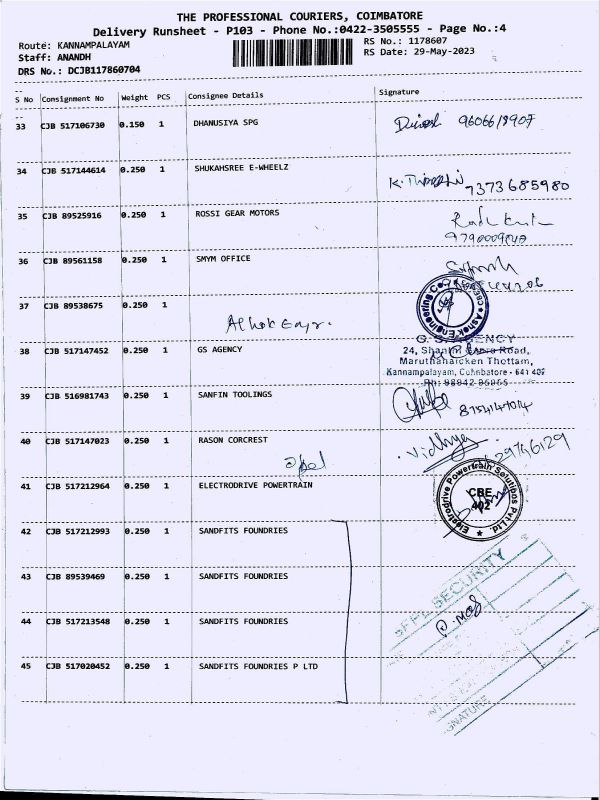 THE PROFESSIONAL COURIERS, COIMBATORE
Delivery Runsheet - P103 - Phone No.:0422-3505555 - Page No.:4
Route: KANNAMPALAYAM RS No.: 1178607
Staff: ANANDH RS Date: 29-May-2023
DRS No.: DCJB117860704
S No Consignment No Weight PCS Consignee Details Signature
33 CJB 517106730 0.150 1 DHANUSIYA SPG
34 CJB 517144614 0.250 1 SHUKAHSREE E-WHEELZ
7373685980
35 CJB 89525916 0.250 1 ROSSI GEAR MOTORS
36 CJB 89561158 0.250 1 SMYM OFFICE
37 CJB 89538675 0.250 1
Ashok Engr.
Ashok Engineering Co
38 CJB 517147452 0.250 1 GS AGENCY
AGENCY
24, Road,
Maruthanaicken Thottam,
Kannampalayam, Coimbatore - 641 402
39 CJB 516981743 0.250 1 SANFIN TOOLINGS
40 CJB 517147023 0.250 1 RASON CORCREST
Vidhya
41 CJB 517212964 0.250 1 ELECTRODRIVE POWERTRAIN
Electrodrive Powertrain Solutions Pvt Ltd
CBE
402
42 CJB 517212993 0.250 1 SANDFITS FOUNDRIES
43 CJB 89539469 0.250 1 SANDFITS FOUNDRIES
SFPL SECURITY
44 CJB 517213548 0.250 1 SANDFITS FOUNDRIES
45 CJB 517020452 0.250 1 SANDFITS FOUNDRIES P LTD